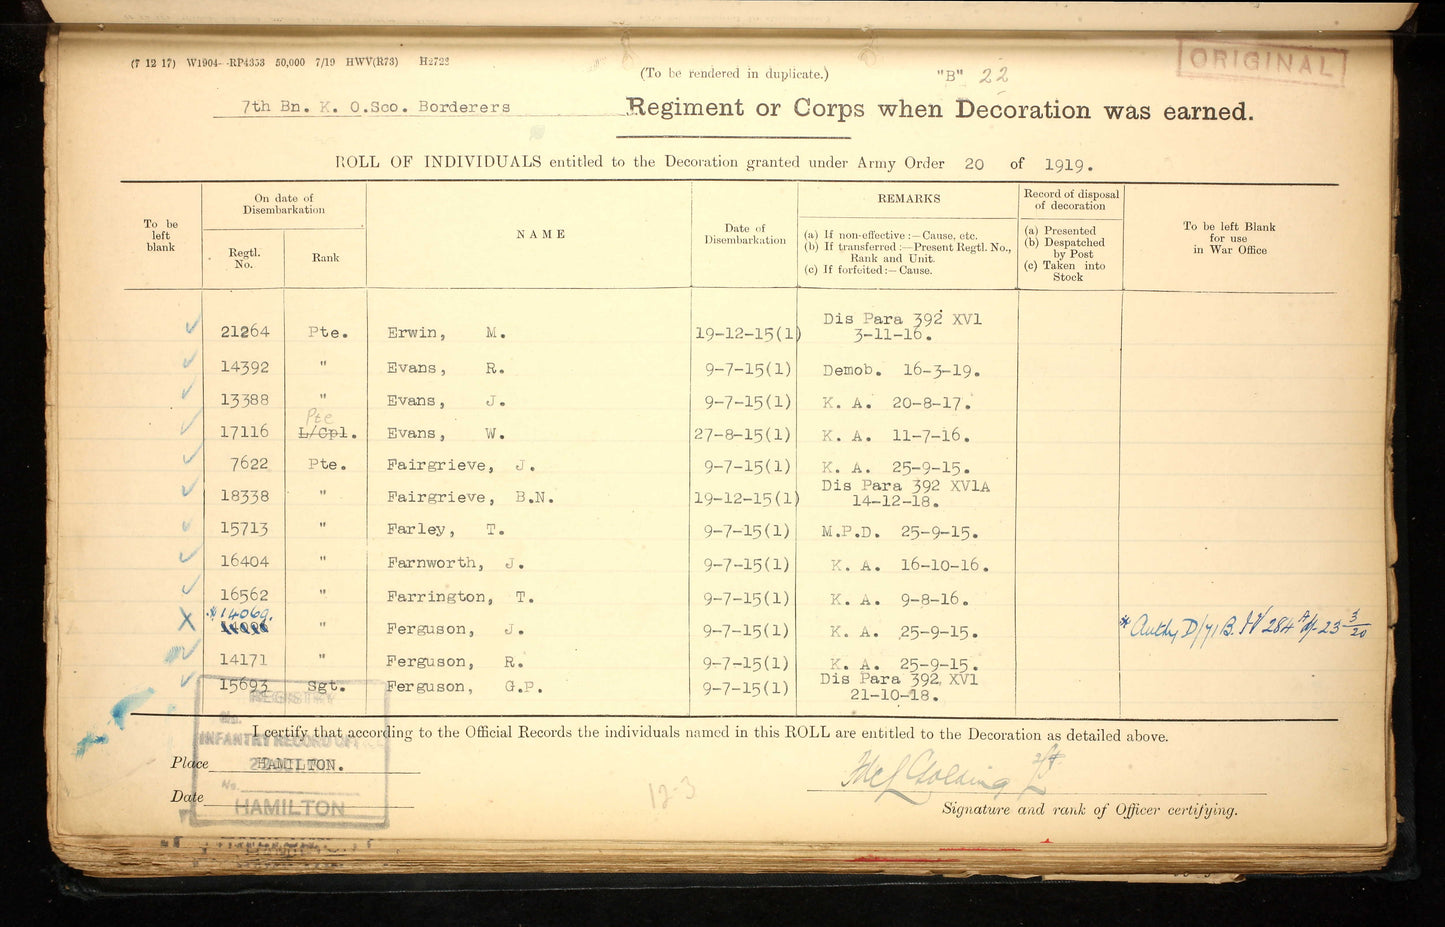 (7 12 17) W1904--RP4353 50,000 7/19 HWV(R73) H2722
(To be rendered in duplicate.)
"B" 22
ORIGINAL
7th Bn. K. O.Sco. Borderers Regiment or Corps when Decoration was earned.
ROLL OF INDIVIDUALS entitled to the Decoration granted under Army Order 20 of 1919.
To be left blank
On date of Disembarkation
Regtl. No.
Rank
NAME
Date of Disembarkation
REMARKS
(a) If non-effective:—Cause, etc.
(b) If transferred:—Present Regtl. No., Rank and Unit.
(c) If forfeited:—Cause.
Record of disposal of decoration
(a) Presented
(b) Despatched by Post
(c) Taken into Stock
To be left Blank for use in War Office
21264 Pte. Erwin, M. 19-12-15(1) Dis Para 392 XVI 3-11-16.
14392 " Evans, R. 9-7-15(1) Demob. 16-3-19.
13388 " Evans, J. 9-7-15(1) K. A. 20-8-17.
Pte
17116 L/Cpl. Evans, W. 27-8-15(1) K. A. 11-7-16.
7622 Pte. Fairgrieve, J. 9-7-15(1) K. A. 25-9-15.
18338 " Fairgrieve, B.N. 19-12-15(1) Dis Para 392 XVIA 14-12-18.
15713 " Farley, T. 9-7-15(1) M.P.D. 25-9-15.
16404 " Farnworth, J. 9-7-15(1) K. A. 16-10-16.
16562 " Farrington, T. 9-7-15(1) K. A. 9-8-16.
X * 14069. " Ferguson, J. 9-7-15(1) K. A. 25-9-15. * Authy D/71 B. IV 284 A d/- 23 3/20
14171 " Ferguson, R. 9-7-15(1) K. A. 25-9-15.
15693 Sgt. Ferguson, G.P. 9-7-15(1) Dis Para 392 XVI 21-10-18.
REGISTRY
No.
INFANTRY RECORD OFFICE
No.
HAMILTON
I certify that according to the Official Records the individuals named in this ROLL are entitled to the Decoration as detailed above.
Place HAMILTON.
Date
12-3
Golding Lt
Signature and rank of Officer certifying.